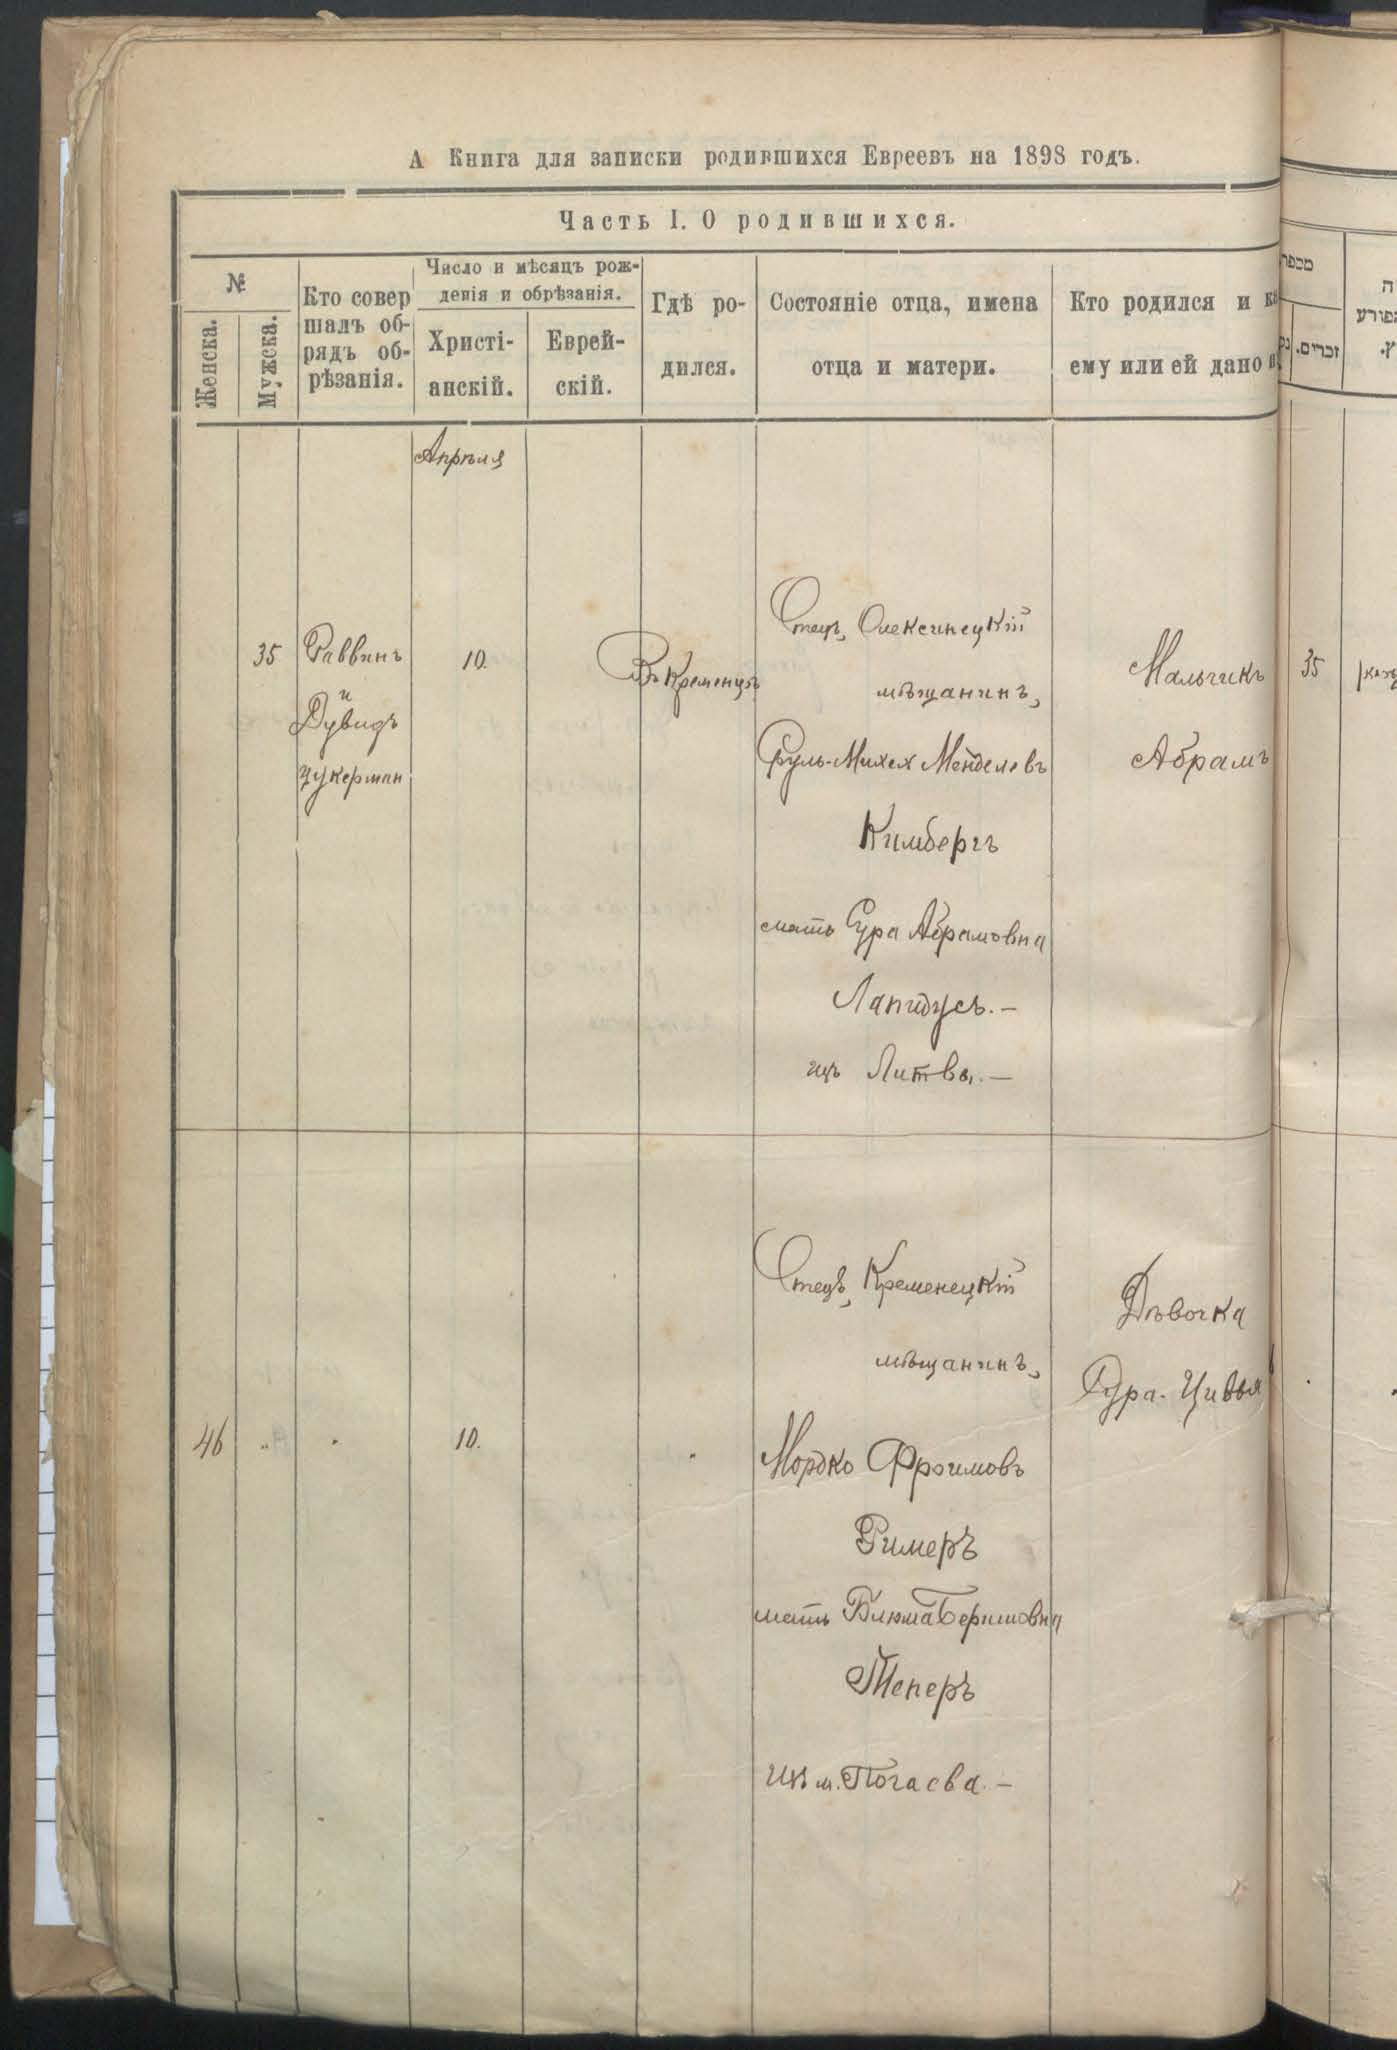 А Книга для записки родившихся Евреевъ на 1898 годъ.
Часть I. О родившихся.
№
Женска.
Мужска.
Кто совер
шалъ об-
рядъ об-
рѣзанія.
Число и мѣсяцъ рож-
денія и обрѣзанія.
Христі-
анскій.
Еврей-
скій.
Гдѣ ро-
дился.
Состояніе отца, имена
отца и матери.
Кто родился и
ему или ей дано
זכרים.
Апрѣля
35
Раввинъ
и
Дувидъ
Цукерман
10.
Въ Кременцѣ
Отецъ, Олексинецкій
мѣщанинъ,
Сруль-Михел Менделевъ
Кимбергъ
мать Сура Абрамовна
Лапидусъ. —
изъ Литвы. —
Мальчикъ
Абрамъ
35
46
"
10.
Отецъ, Кременецкій
мѣщанинъ,
Мордко Фроимовъ
Ример​ъ
мать Блюма Беришовна
Теперъ
изъ м. Почаева. —
Дѣвочка
Сура-Цивья